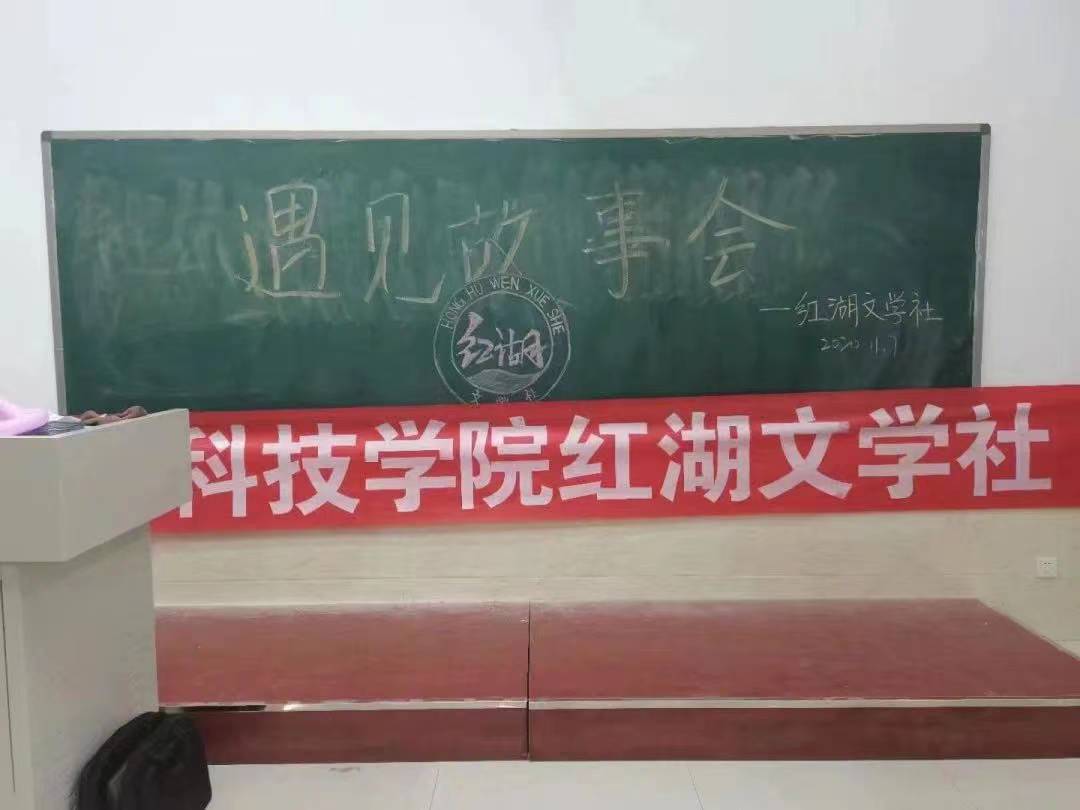 遇见故事会
HONG HU WEN XUE SHE
红湖
文学社
—红湖文学社
2020.11.7
科技学院红湖文学社